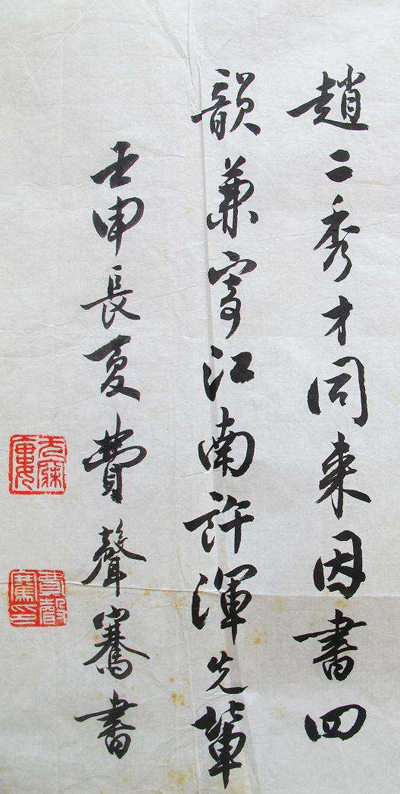 趙二秀才同來因書四
韻兼寄江南許渾先輩
壬申長夏費聲騫書
費聲騫印